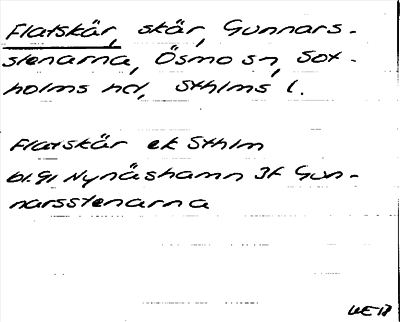 Flatskär, skär, Gunnars-
stenarna, Ösmo sn, Sot-
holms hd, Sthlms l.
Flatskär ek Sthlm
bl. 91 Nynäshamn 3f Gun-
narsstenarna